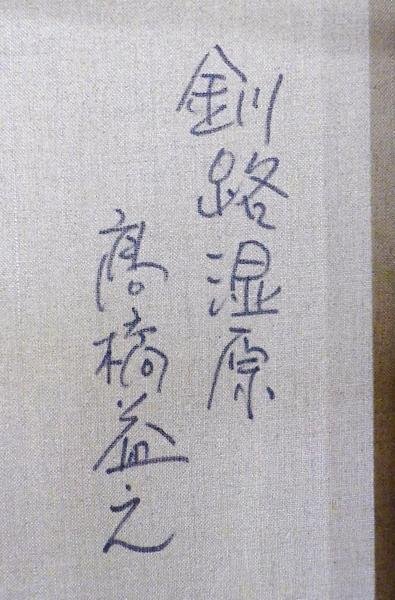 釧路湿原
高橋益之